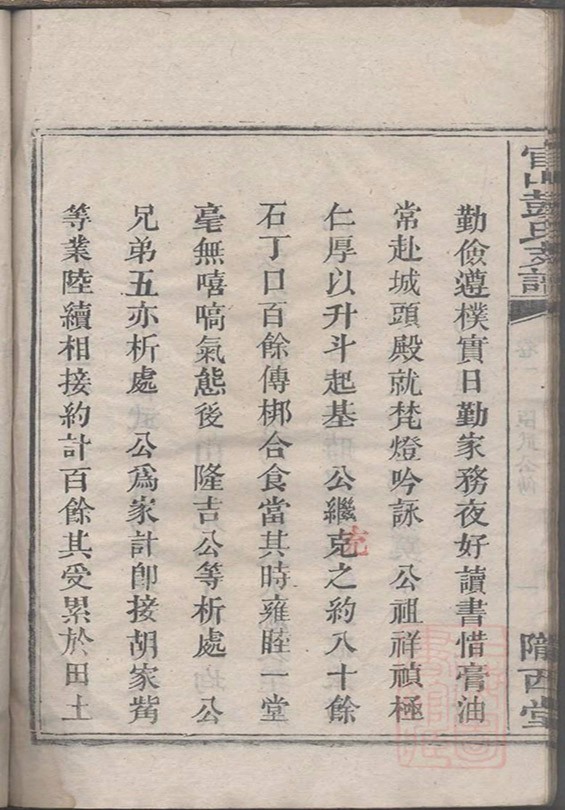 官山彭氏支譜
隴西堂
勤儉遵樸實日勤家務夜好讀書惜膏油
常赴城頭殿就梵燈吟詠 公祖祥禎極
仁厚以升斗起基 公繼克之約八十餘
充
石丁口百餘傳梆合食當其時雍睦一堂
毫無嘻嗃氣態後隆吉公等析處 公
兄弟五亦析處 公爲家計卽接胡家嘴
等業陸續相接約計百餘其受累於田土